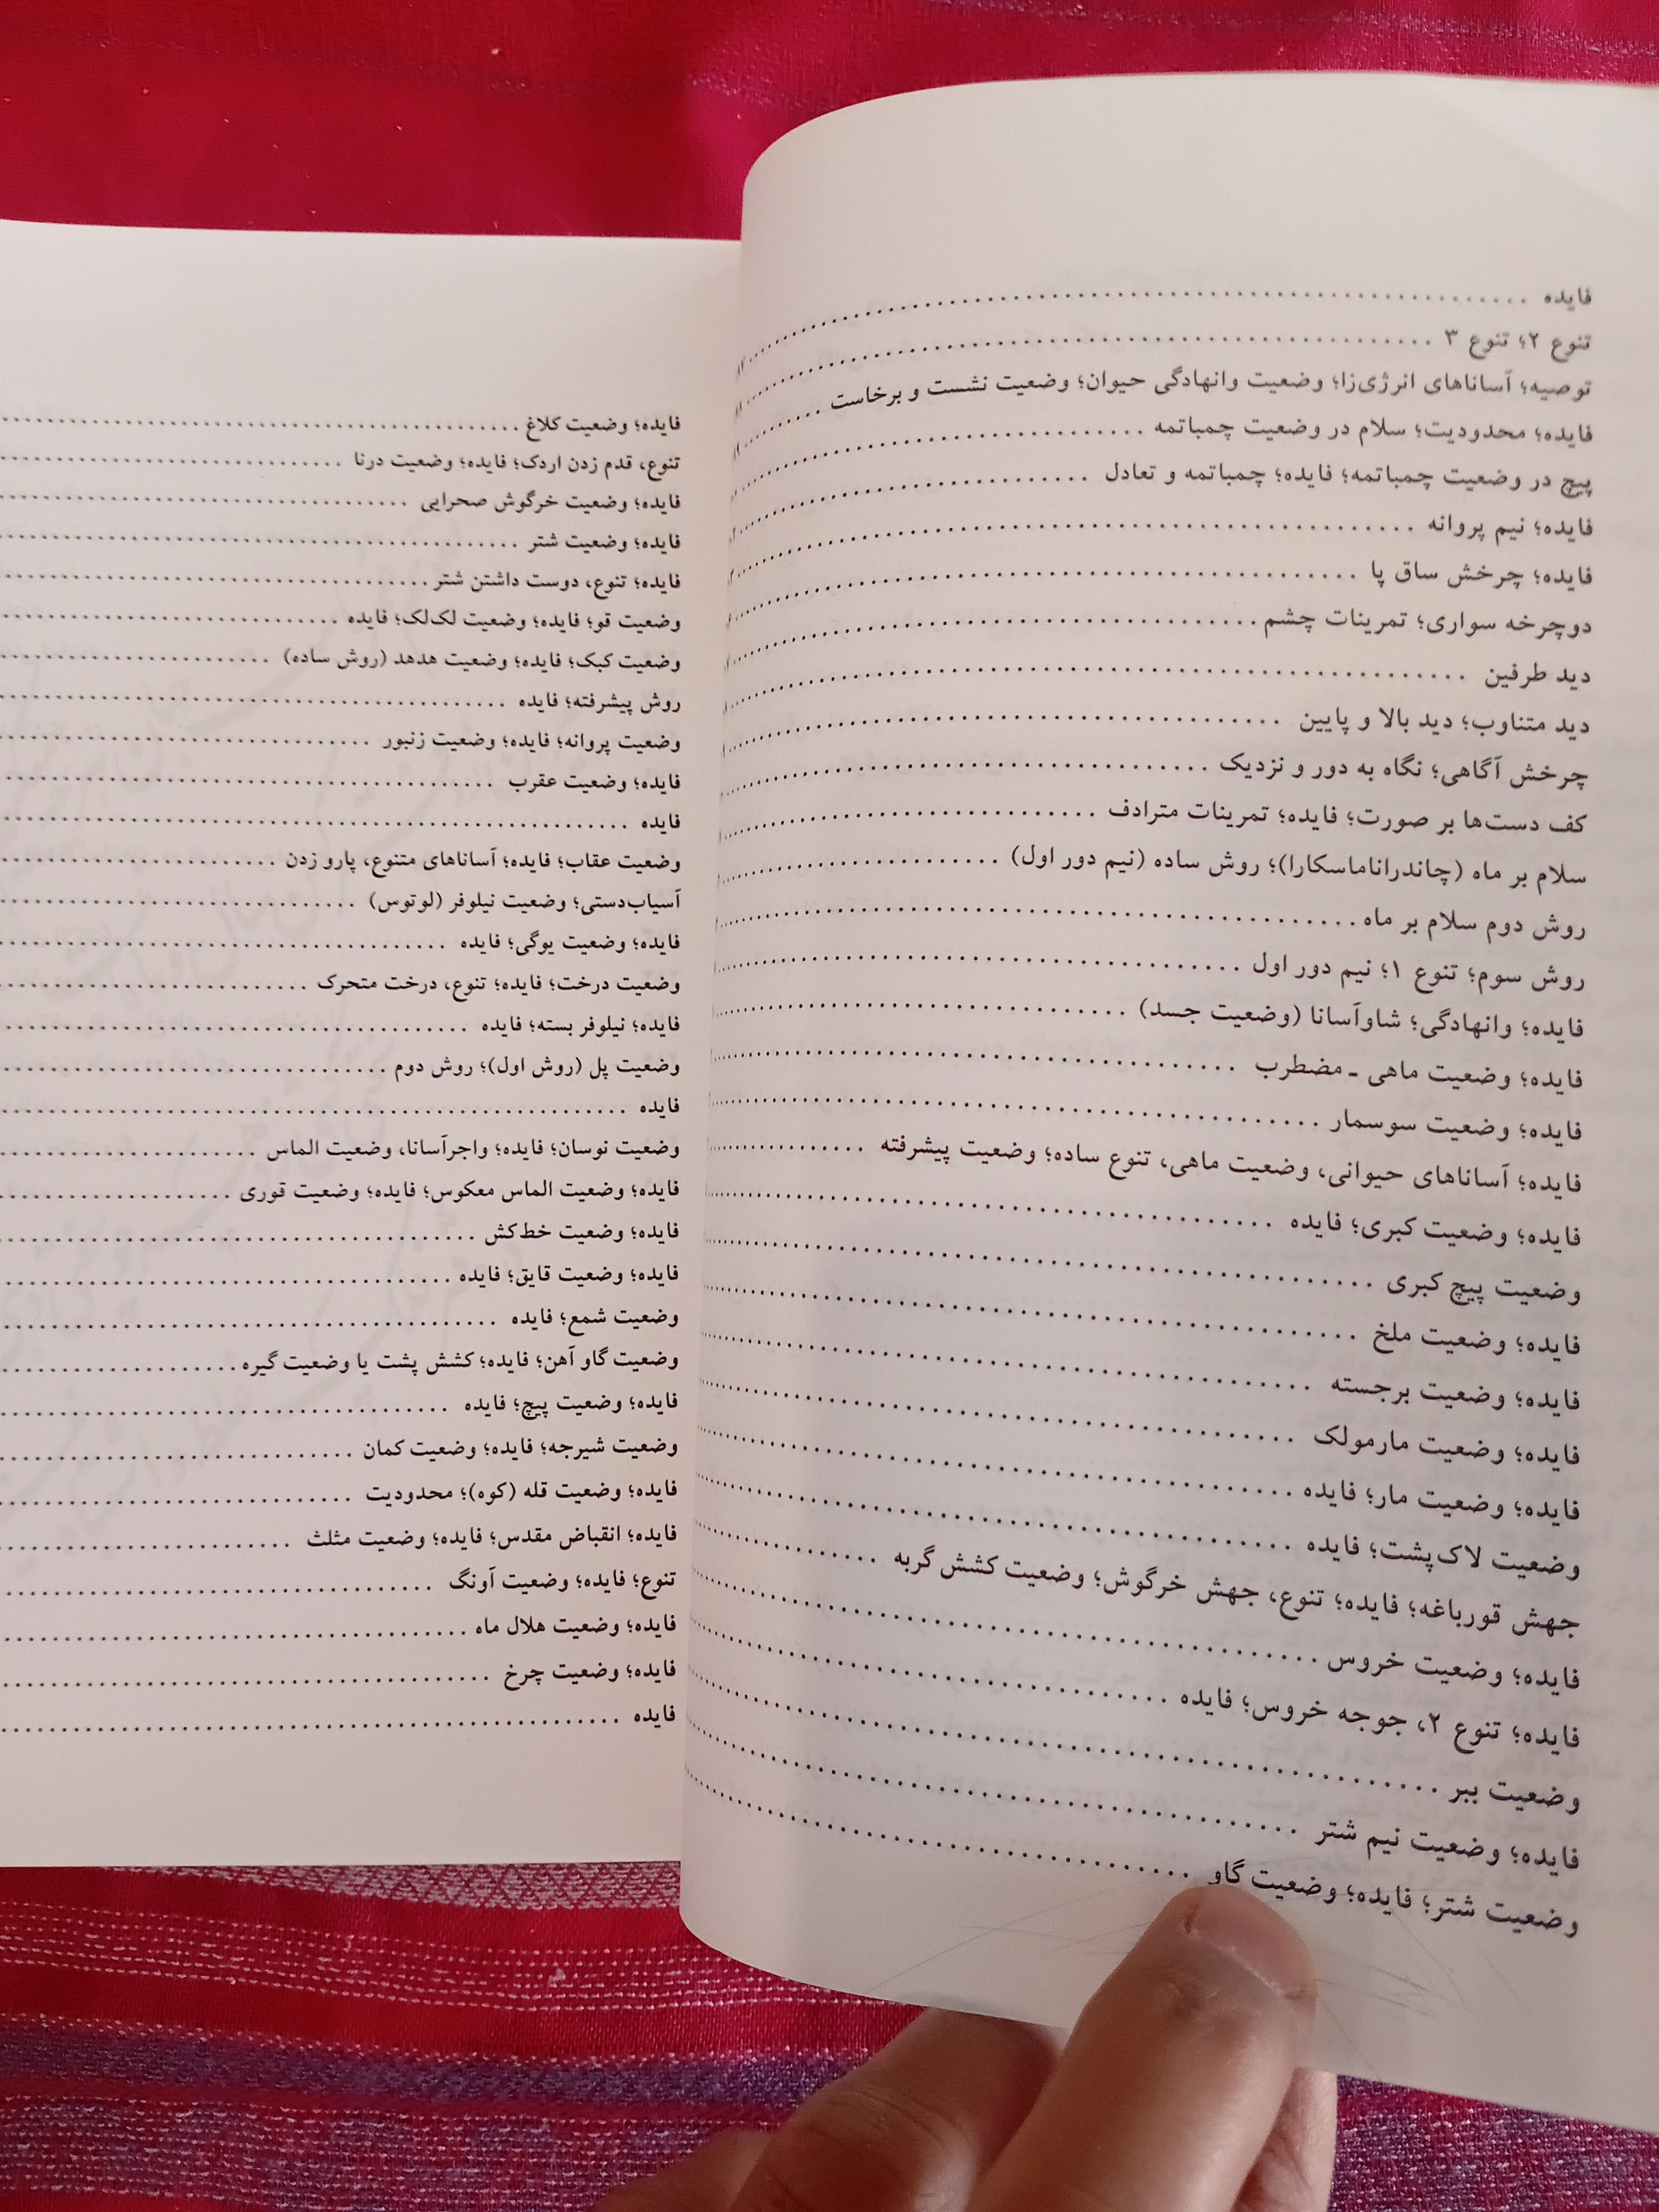 فایده
تنوع ۲؛ تنوع ۳
توصیه؛ آساناهای انرژی‌زا؛ وضعیت وانهادگی حیوان؛ وضعیت نشست و برخاست
فایده؛ محدودیت؛ سلام در وضعیت چمباتمه
پیچ در وضعیت چمباتمه؛ فایده؛ چمباتمه و تعادل
فایده؛ نیم پروانه
فایده؛ چرخش ساق پا
دوچرخه سواری؛ تمرینات چشم
دید طرفین
دید متناوب؛ دید بالا و پایین
چرخش آگاهی؛ نگاه به دور و نزدیک
کف دست‌ها بر صورت؛ فایده؛ تمرینات مترادف
سلام بر ماه (چاندراناماسکارا)؛ روش ساده (نیم دور اول)
روش دوم سلام بر ماه
روش سوم؛ تنوع ۱؛ نیم دور اول
فایده؛ وانهادگی؛ شاوآسانا (وضعیت جسد)
فایده؛ وضعیت ماهی ـ مضطرب
فایده؛ وضعیت سوسمار
فایده؛ آساناهای حیوانی، وضعیت ماهی، تنوع ساده؛ وضعیت پیشرفته
فایده؛ وضعیت کبری؛ فایده
وضعیت پیچ کبری
فایده؛ وضعیت ملخ
فایده؛ وضعیت برجسته
فایده؛ وضعیت مارمولک
فایده؛ وضعیت مار؛ فایده
وضعیت لاک‌پشت؛ فایده
جهش قورباغه؛ فایده؛ تنوع، جهش خرگوش؛ وضعیت کشش گربه
فایده؛ وضعیت خروس
فایده؛ تنوع ۲، جوجه خروس؛ فایده
وضعیت ببر
فایده؛ وضعیت نیم شتر
وضعیت شتر؛ فایده؛ وضعیت گاو
فایده؛ وضعیت کلاغ
تنوع، قدم زدن اردک؛ فایده؛ وضعیت درنا
فایده؛ وضعیت خرگوش صحرایی
فایده؛ وضعیت شتر
فایده؛ تنوع، دوست داشتن شتر
وضعیت قو؛ فایده؛ وضعیت لک‌لک؛ فایده
وضعیت کبک؛ فایده؛ وضعیت هدهد (روش ساده)
روش پیشرفته؛ فایده
وضعیت پروانه؛ فایده؛ وضعیت زنبور
فایده؛ وضعیت عقرب
فایده
وضعیت عقاب؛ فایده؛ آساناهای متنوع، پارو زدن
آسیاب‌دستی؛ وضعیت نیلوفر (لوتوس)
فایده؛ وضعیت یوگی؛ فایده
وضعیت درخت؛ فایده؛ تنوع، درخت متحرک
فایده؛ نیلوفر بسته؛ فایده
وضعیت پل (روش اول)؛ روش دوم
فایده
وضعیت نوسان؛ فایده؛ واجرآسانا، وضعیت الماس
فایده؛ وضعیت الماس معکوس؛ فایده؛ وضعیت قوری
فایده؛ وضعیت خط‌کش
فایده؛ وضعیت قایق؛ فایده
وضعیت شمع؛ فایده
وضعیت گاو آهن؛ فایده؛ کشش پشت یا وضعیت گیره
فایده؛ وضعیت پیچ؛ فایده
وضعیت شیرجه؛ فایده؛ وضعیت کمان
فایده؛ وضعیت قله (کوه)؛ محدودیت
فایده؛ انقباض مقدس؛ فایده؛ وضعیت مثلث
تنوع؛ فایده؛ وضعیت آونگ
فایده؛ وضعیت هلال ماه
فایده؛ وضعیت چرخ
فایده